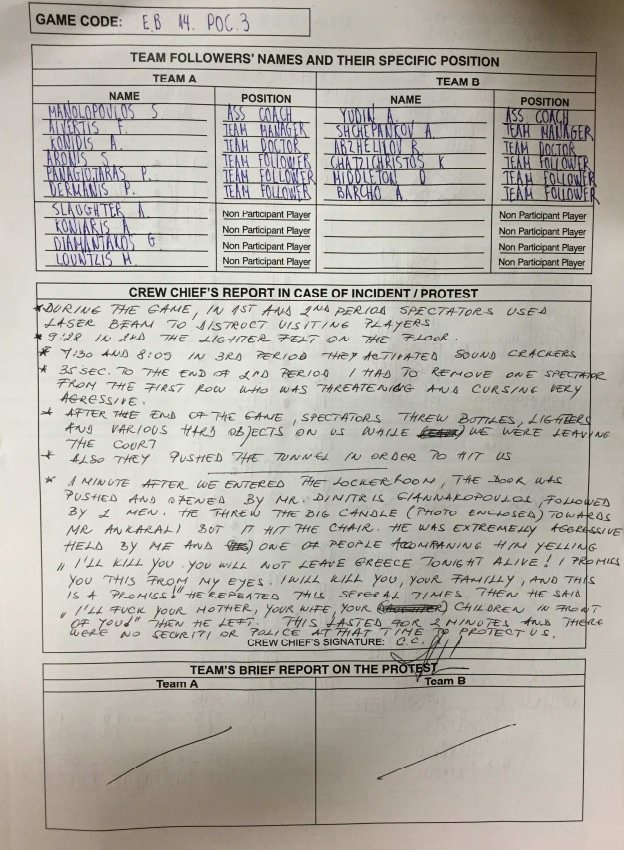 GAME CODE: E.B 14. POC.3
TEAM FOLLOWERS' NAMES AND THEIR SPECIFIC POSITION
TEAM A TEAM B
NAME POSITION NAME POSITION
MANOLOPOULOS S ASS COACH YUDIN A. ASS COACH
ALVERTIS F. TEAM MANAGER SHCHEPANKOV A. TEAM MANAGER
KONIDIS A. TEAM DOCTOR ABZHELILOV R. TEAM DOCTOR
ARONIS S. TEAM FOLLOWER CHATZICHRISTOS K TEAM FOLLOWER
PANAGIOTARAS P. TEAM FOLLOWER MIDDLETON D TEAM FOLLOWER
DERMANIS P. TEAM FOLLOWER BARCHO A TEAM FOLLOWER
SLAUGHTER A. Non Participant Player Non Participant Player
KONIARIS A. Non Participant Player Non Participant Player
DIAMANTAKOS G. Non Participant Player Non Participant Player
LOUNTZIS M. Non Participant Player Non Participant Player
CREW CHIEF'S REPORT IN CASE OF INCIDENT / PROTEST
* DURING THE GAME, IN 1ST AND 2ND PERIOD SPECTATORS USED
LASER BEAM TO DISTRUCT VISITING PLAYERS
* 9:28 IN 2ND THE LIGHTER FELT ON THE FLOOR.
* 7:30 AND 8:09 IN 3RD PERIOD THEY ACTIVATED SOUND CRACKERS
* 35 SEC. TO THE END OF 2ND PERIOD I HAD TO REMOVE ONE SPECTATOR
FROM THE FIRST ROW WHO WAS THREATENING AND CURSING VERY
AGRESSIVE.
* AFTER THE END OF THE GAME, SPECTATORS THREW BOTTLES, LIGHTERS
AND VARIOUS HARD OBJECTS ON US WHILE WE WERE LEAVING
THE COURT
* ALSO THEY PUSHED THE TUNNEL IN ORDER TO HIT US
* 1 MINUTE AFTER WE ENTERED THE LOCKERROOM, THE DOOR WAS
PUSHED AND OPENED BY MR. DIMITRIS GIANNAKOPOULOS, FOLLOWED
BY 2 MEN. HE THREW THE BIG CANDLE (PHOTO ENCLOSED) TOWARDS
MR ANKARALI BUT IT HIT THE CHAIR. HE WAS EXTREMELY AGGRESSIVE
HELD BY ME AND ONE OF PEOPLE ACOMPANING HIM YELLING
„I'LL KILL YOU. YOU WILL NOT LEAVE GREECE TONIGHT ALIVE! I PROMISS
YOU THIS FROM MY EYES. I WILL KILL YOU, YOUR FAMILLY, AND THIS
IS A PROMISS!" HE REPEATED THIS SEVERAL TIMES. THEN HE SAID
„I'LL FUCK YOUR MOTHER, YOUR WIFE, YOUR CHILDREN IN FRONT
OF YOU!" THEN HE LEFT. THIS LASTED FOR 2 MINUTES AND THERE
WERE NO SECURITI OR POLICE AT THAT TIME TO PROTECT US.
CREW CHIEF'S SIGNATURE: C.C.
TEAM'S BRIEF REPORT ON THE PROTEST
Team A Team B